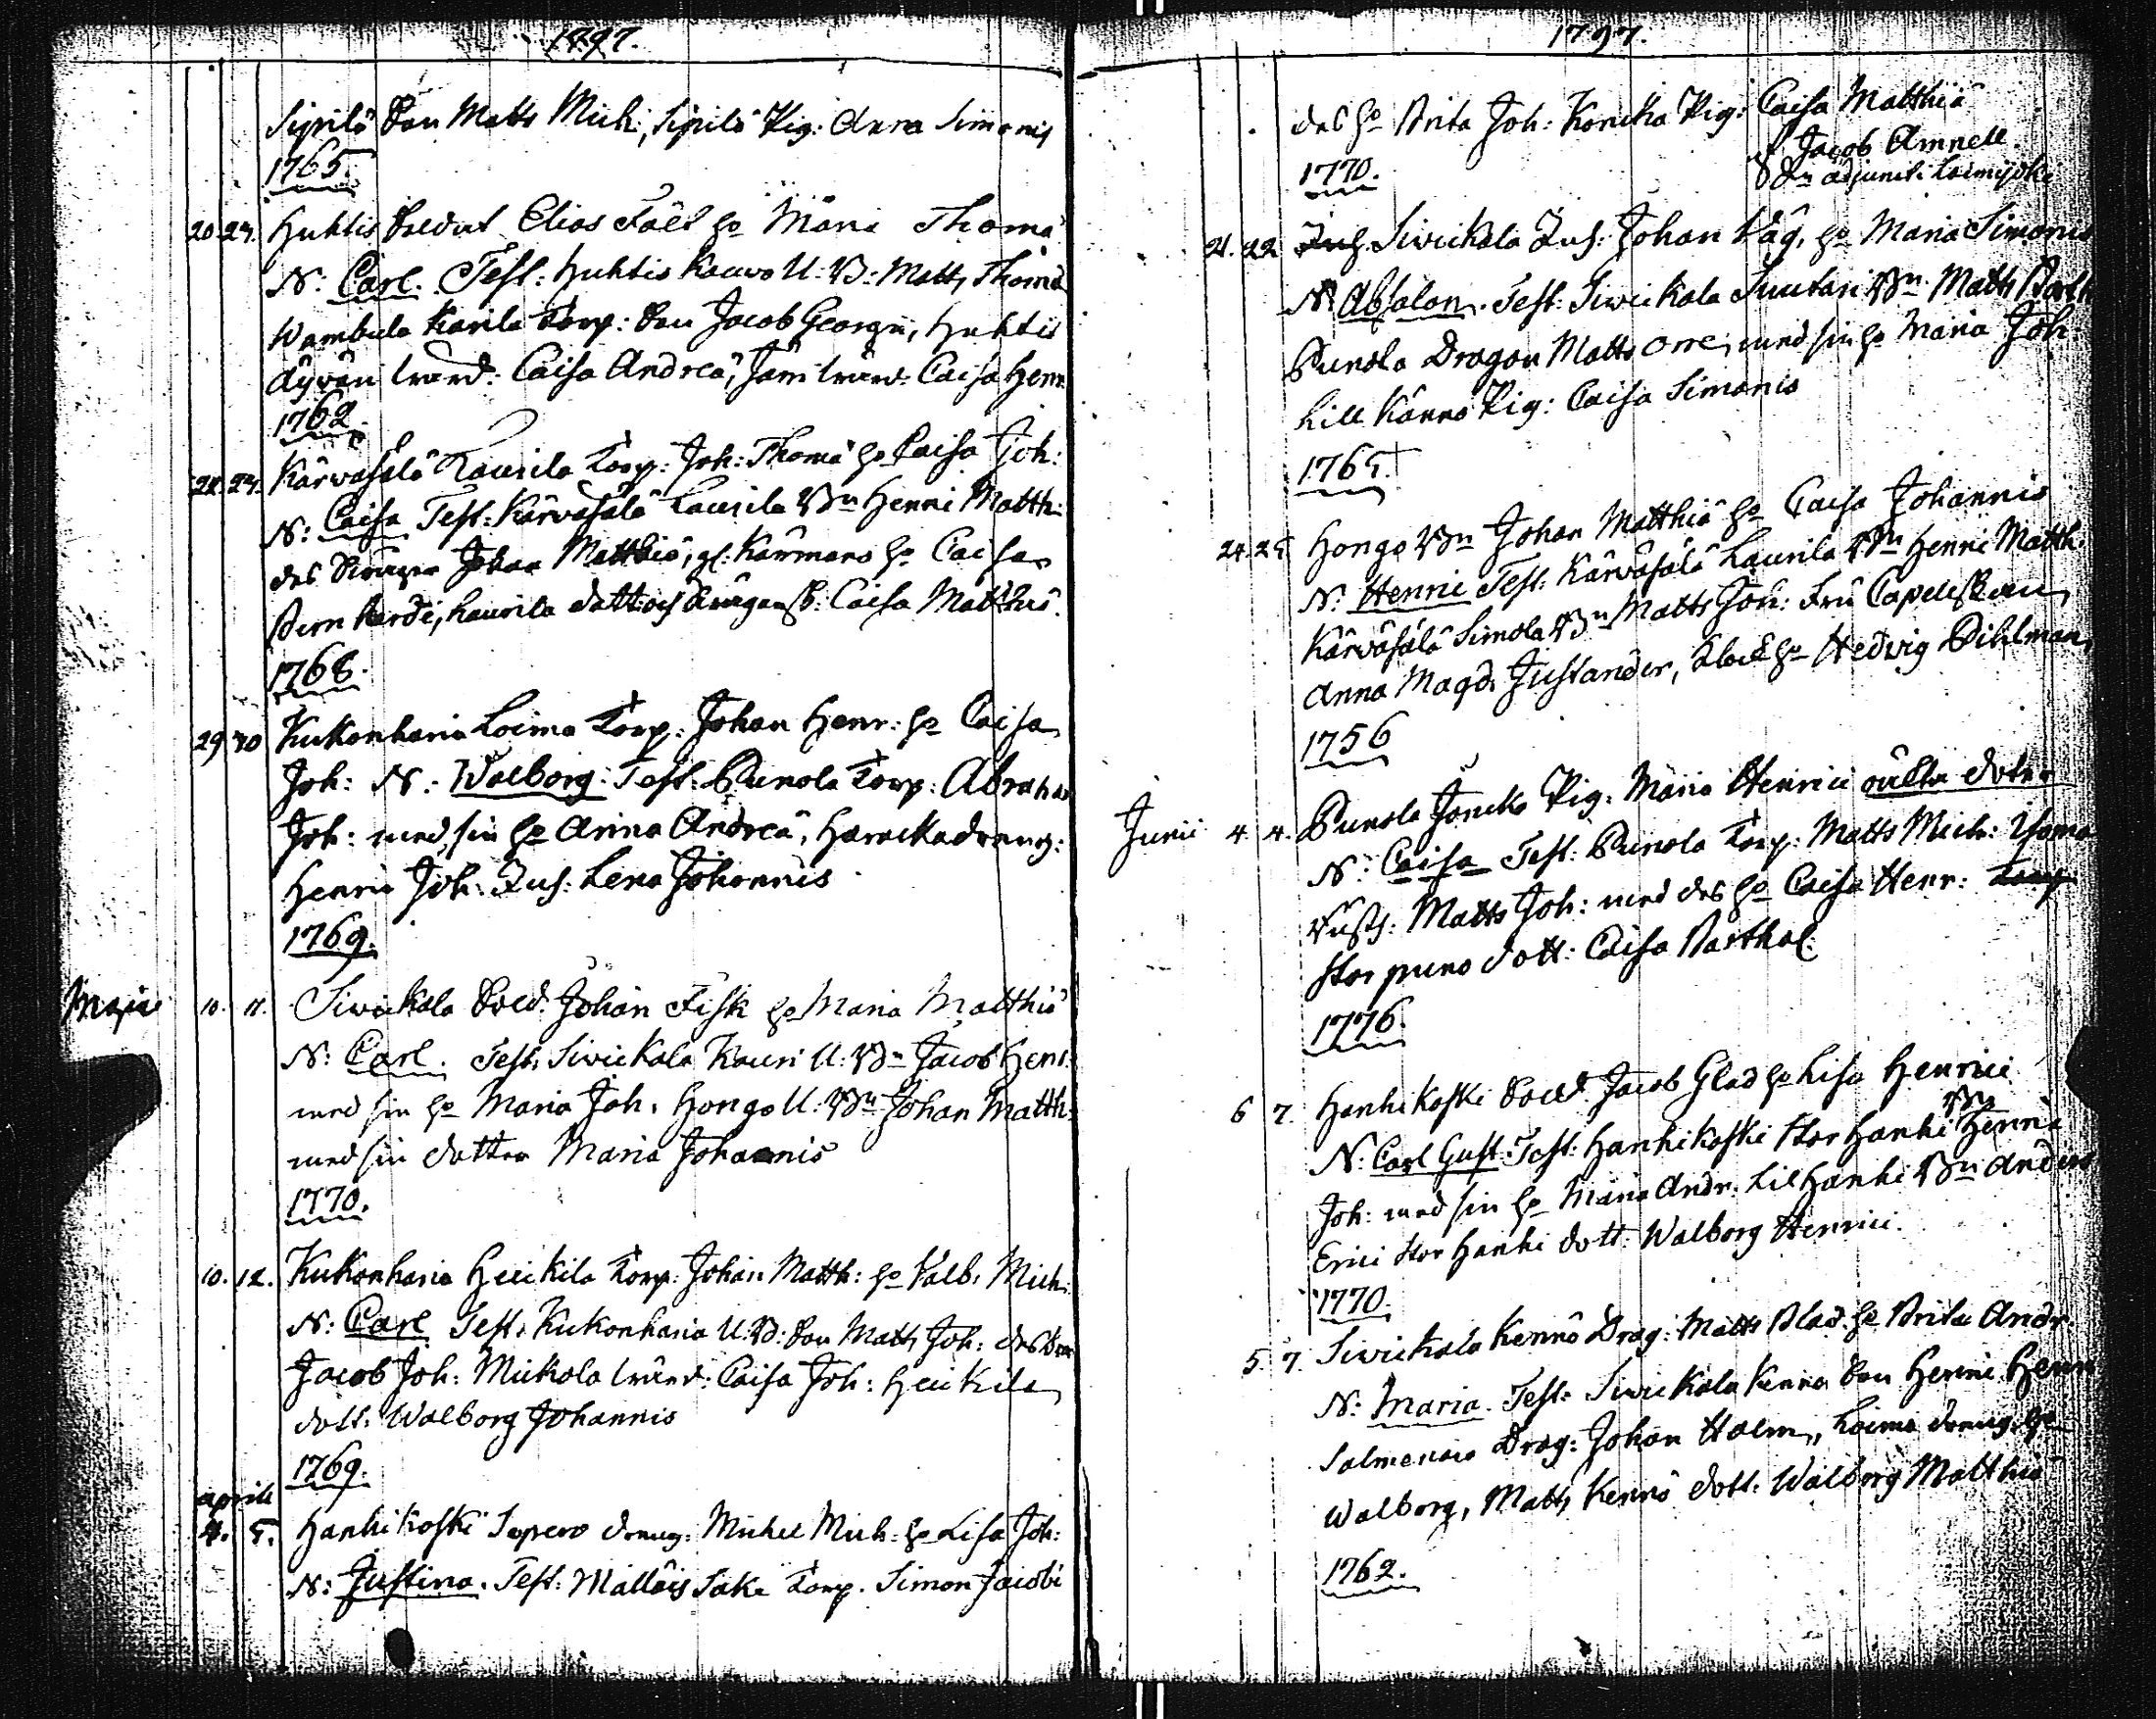 1797.
Sipilä Son Matts Mich:, Sipilä Pig: Anna Simonis
1765.
20. 24. Huhtis Soldat Elias Fält h:o Maria Thomæ
N: Carl. Test: Huhtis Kauro U: B: Matts Thomæ
Wambula Karila Torp: Son Jacob Georgii, Huhtis
Äyväri wärd: Caisa Andreæ, Jäni wärd: Caisa Henr:
1762.
22. 24. Kärväsälä Laurila Torp: Joh: Thomæ h:o Caisa Joh:
N: Caisa Test: Kärväsälä Laurila B:n Henric Matth:
des Swåger Johan Matthiæ, gl: Karmans h:o Caisa
Bernhardi, Laurila dott: och Swågersk: Caisa Matthiæ.
1768.
29 30 Kukonharia Loima Torp: Johan Henr: h:o Caisa
Joh: N: Walborg. Test: Punola Torp: Abraham
Joh: med sin h:o Anna Andreæ, Haracka dräng:
Henric Joh: Jus: Lena Johannis
1769.
Maji 10. 11. Siwikala Sold: Johan Fisk h:o Maria Matthiæ
N: Carl. Test: Siwikala Kauri U: B:n Jacob Henr:
med sin h:o Maria Joh: Hongo U: B:n Johan Matth:
med sin dotter Maria Johannis
1770.
10. 12. Kukonharia Heikilä Torp: Johan Matth: h:o Valb: Mich:
N: Carl Test: Kukonharia U: B: Son Matts Joh: des Bror
Jacob Joh: Mickola wärd: Caisa Joh: Heikilä
dott: Walborg Johannis
1769.
aprill
4. 5. Hanhikoski Sepero dräng: Michel Mich: h:o Lisa Joh:
N: Justina. Test: Mallais Sake Torp. Simon Jacobi
1797.
des h:o Brita Joh: Konicka Pig: Caisa Matthiæ
1770. Jacob Amnell
V: D: adjunct: Loimijoki
21. 22 Siwikala Jus: Johan Våg, h:o Maria Simonis
N: Absalon. Test: Siwikala Suutari B:n Matts Barth
Punola Dragon Matts Orre, med sin h:o Maria Joh
Lill Känno Pig: Caisa Simonis
1765.
24. 25 Hongo B:n Johan Matthiæ h:o Caisa Johannis
N: Henric Test: Kärväsälä Laurila B:n Henric Matth:
Kärväsälä Simola B:n Matts Joh: Fru Capellskan
Anna Magd: Justander, Klock h:o Hedvig Pihlman
1756
Junii 4 4. Punola Joncko Pig: Maria Henrici oäkta doter
N: Caisa Test: Punola Torp: Matts Mich:
Matts Joh: med des h:o Caisa Henr:
Stor puno dott: Caisa Barthol:
1776.
6 7. Hanhikoski Sold: Jacob Glad h:o Lisa Henrici
N: Carl Gust: Test: Hanhikoski Stor Hanhi B:n Henric
Joh: med sin h:o Maria Andr: Lil Hanhi B:n Anders
Erici Stor Hanhi dott: Walborg Henrici.
1770.
5. 7. Siwikala Kennö Drag: Matts Blad. h:o Brita Andr.
N: Maria. Test: Siwikala Kennö Son Henric Henr
Salmenoio Drag: Johan Halm, Loima dräng. h:o
Walborg, Matts Kennö dott: Walborg Matthiæ
1762.